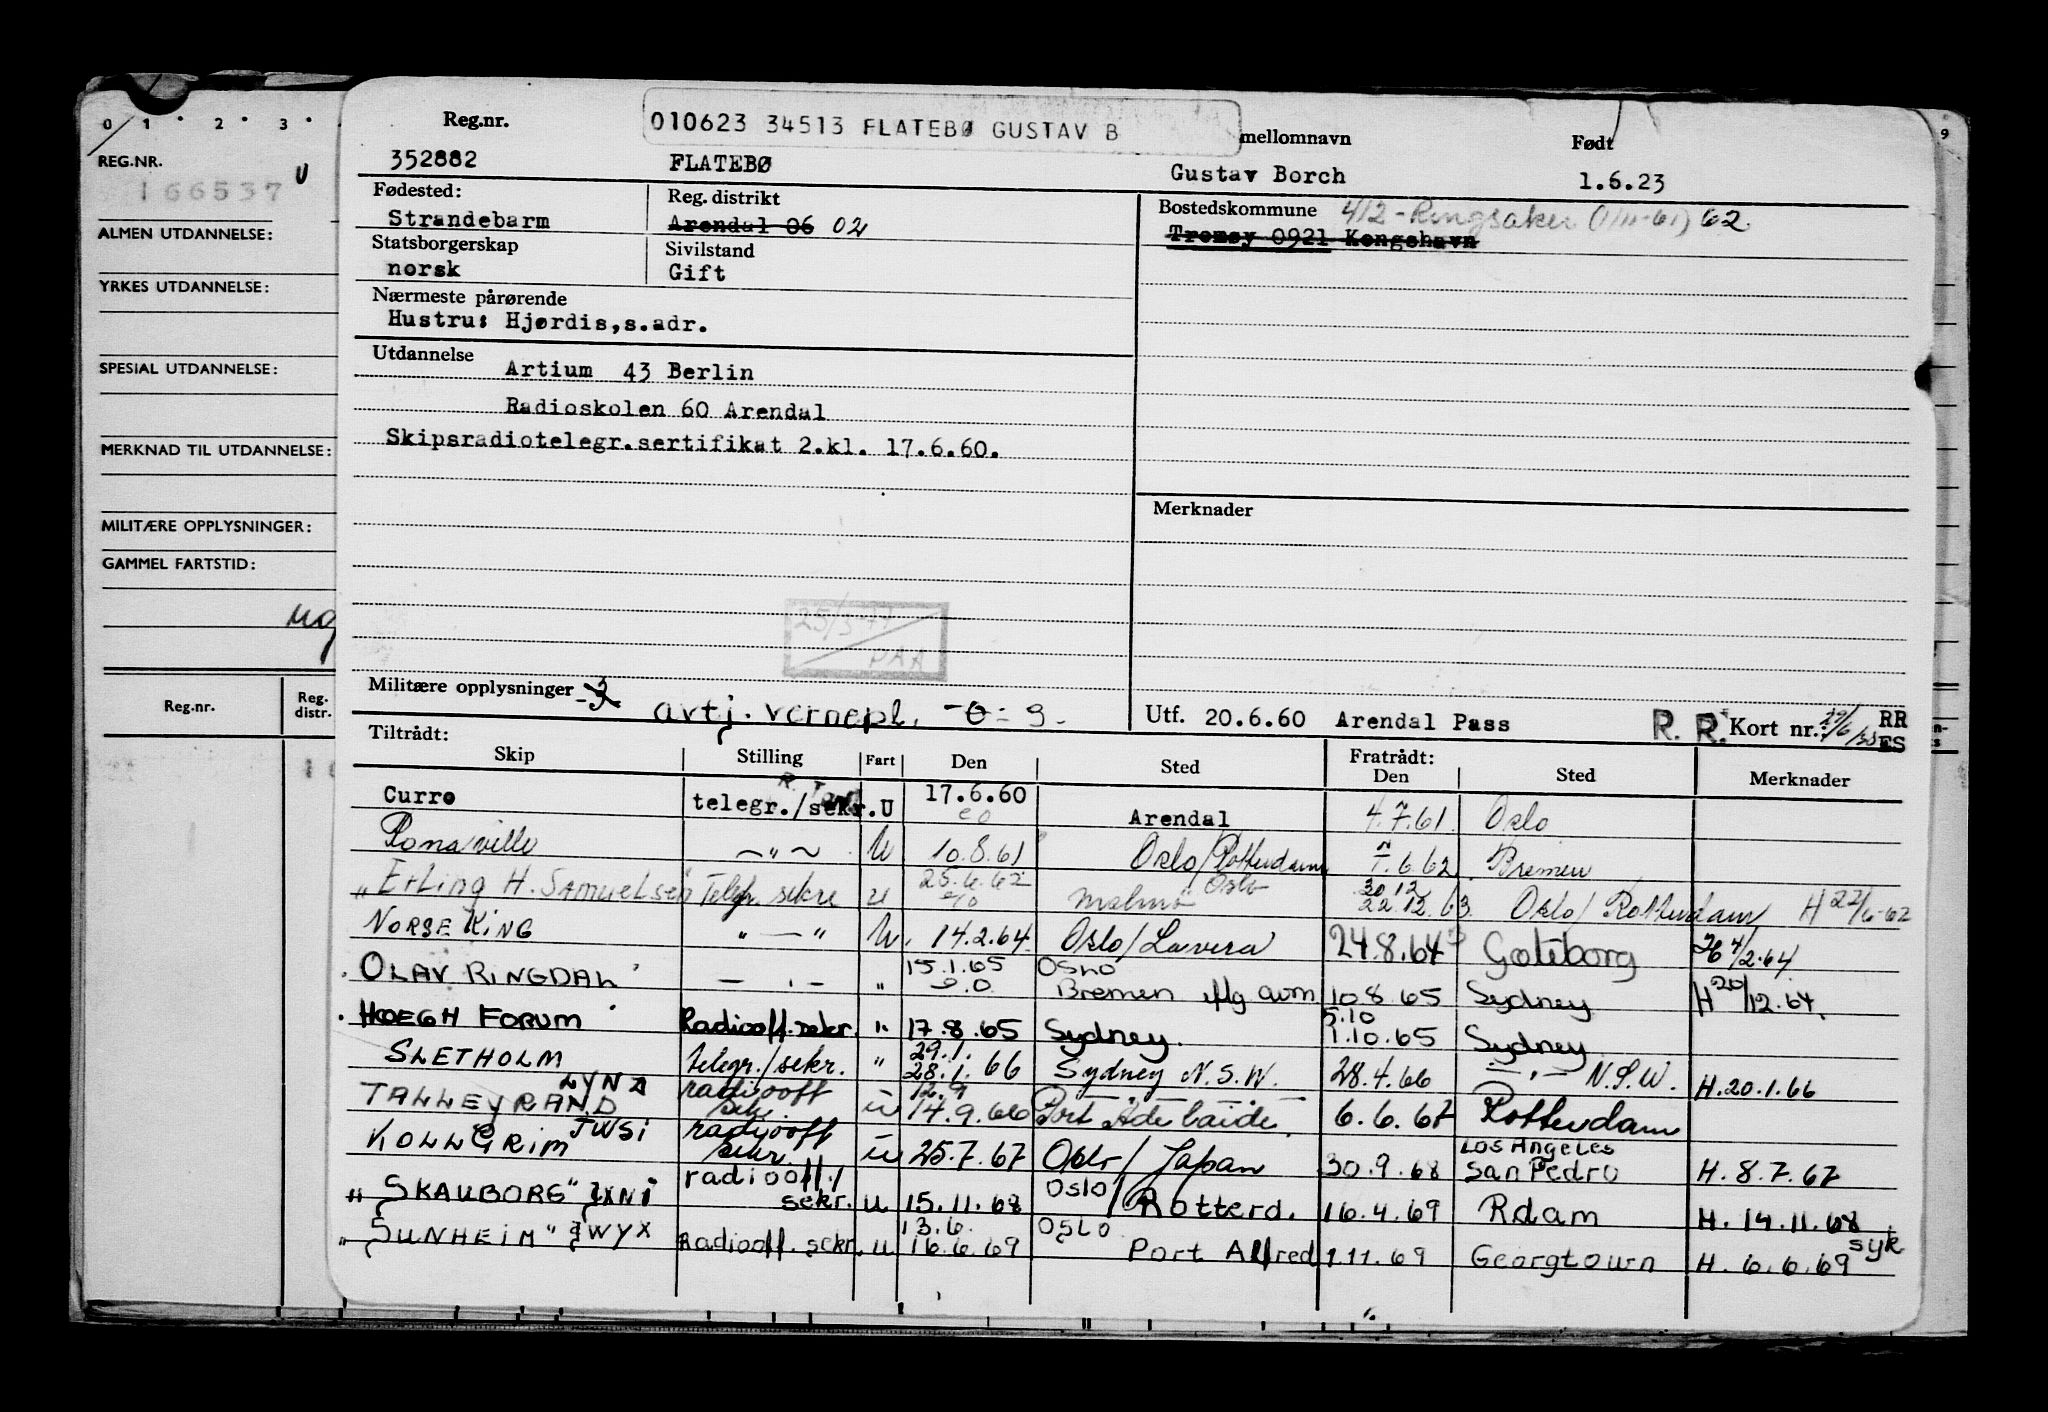 0 1 2 3 9
REG.NR.
166537 U
ALMEN UTDANNELSE:
YRKES UTDANNELSE:
SPESIAL UTDANNELSE:
MERKNAD TIL UTDANNELSE:
MILITÆRE OPPLYSNINGER:
GAMMEL FARTSTID:
ug
Reg.nr. Reg. distr.
010623 34513 FLATEBØ GUSTAV B
Reg.nr. mellomnavn Født
352882 FLATEBØ Gustav Borch 1.6.23
Fødested: Reg. distrikt Bostedskommune 412-Ringsaker (1/11-61) 62
Strandebarm Arendal 06 02 Tromøy 0921 Kongshavn
Statsborgerskap Sivilstand
norsk Gift
Nærmeste pårørende
Hustru: Hjørdis,s.adr.
Utdannelse
Artium 43 Berlin
Radioskolen 60 Arendal
Skipsradiotelegr.sertifikat 2.kl. 17.6.60.
Merknader
25/3-77
PAA
Militære opplysninger -3 avtj. vernepl. -0-9-
Utf. 20.6.60 Arendal Pass R.R. Kort nr. RR ES
Tiltrådt: Fratrådt:
Skip Stilling Fart Den Sted Den Sted Merknader
Curro telegr./sekr. U 17.6.60 Arendal 4.7.61 Oslo
Ronaville —"— U 10.8.61 Oslo/Rotterdam 1.6.62 Bremen
"Erling H. Samuelsen Telegr. sekre u 25.6.62 Malmö Oslo 30.12 22.12.63 Oslo/Rotterdam H 22/6-62
NORSE KING "—" U. 14.2.64 Oslo/Lavera 24.8.64 Goteborg H 4/2.64
OLAV RINGDAL — " — " 15.1.65 OSLO Bremen flg avm 10.8.65 Sydney H 20/12.64.
HOEGH FORUM Radiooff.sekr. ". 17.8.65 Sydney. 5.10 1.10.65 Sydney
SLETHOLM telegr./sekr. " 29.1. 28.1.66 Sydney N.S.W. 28.4.66 —"— N.S.W. H.20.1.66
TALLEYRAND LYNZ radiooff sekr. u 12.9 14.9.66 Port Adelaide 6.6.67 Rotterdam
KOLLGRIM JWSI radiooff sekr u 25.7.67 Oslo/Japan 30.9.68 Los Angeles San Pedro H.8.7.67
"SKAUBORG" LXNI radiooff./ sekr. u 15.11.68 Oslo/Rotterd. 16.4.69 Rdam H. 14.11.68
"SUNHEIM" JWYX Radiooff. sekr. u 13.6. 16.6.69 OSLO Port Alfred 1.11.69 Georgtown H. 6.6.69 syk